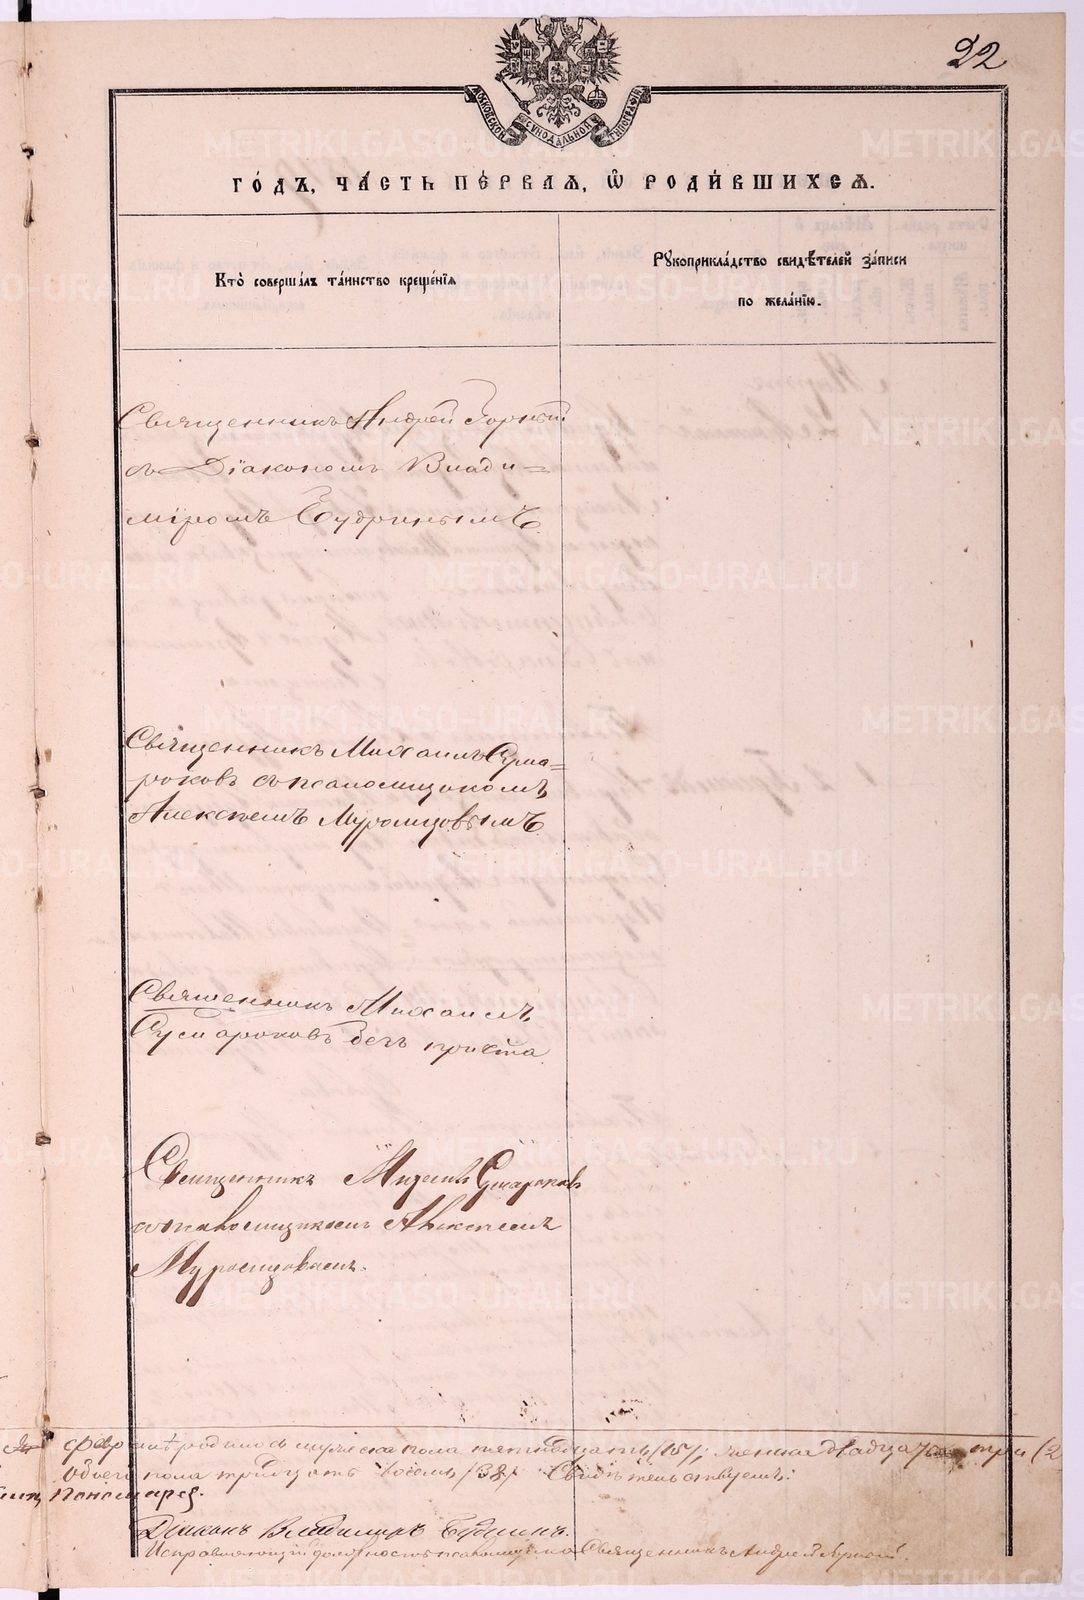 22
МОСКОВСКОЙ СѴНОДАЛЬНОЙ ТИПОГРАФІИ
ГО́ДЪ, ЧА́СТЬ ПЕ́РВАѦ, Ѡ҆ РОДИ́ВШИХСѦ.
Кто̀ соверша́лъ та́инство креще́нїѧ
Рꙋкоприкла́дство свидѣ́телей за́писи
по жела́нїю.
Священникъ Андрей Горный
съ Діакономъ Влади=
міромъ Будринымъ
Священникъ Михаилъ Сума=
роковъ съ псаломщикомъ
Алексѣемъ Муромцовымъ
Священникъ Михаилъ
Сумароковъ безъ причта
Священникъ Михаилъ Сумароковъ
съ псаломщикомъ Алексѣемъ
Муромцовымъ.
февралѣ родилось мужеска пола пятнадцать /15/; женска двадцать три /2
обоего пола тридцать восемь /38/ Свидѣтельствуемъ:
Пономаревъ.
Діаконъ Владиміръ Будринъ.
Исправляющій должность псаломщика Священникъ Андрей Горный.
METRIKI.GASO-URAL.RU